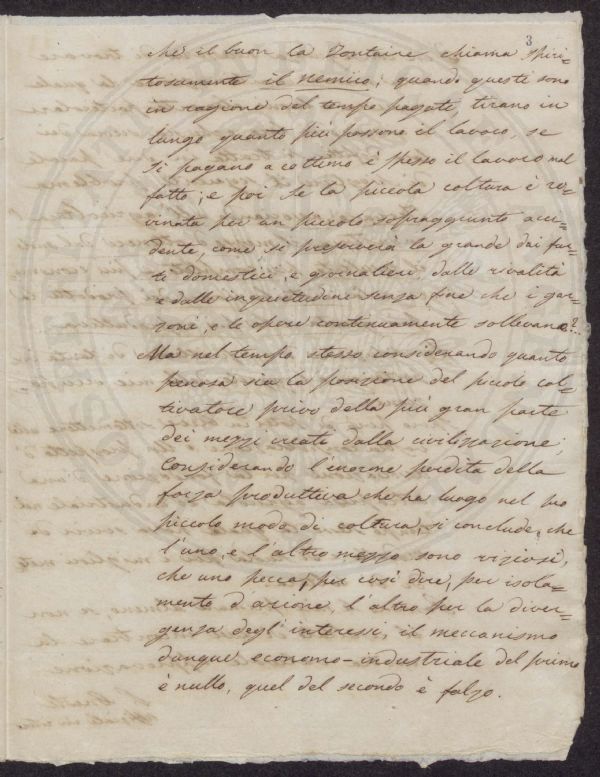 3
che il buon la Fontaine chiama spiri-
tosamente il nemico; quando questi sono
in ragione del tempo pagati, tirano in
lungo quanto più possono il lavoro, se
si pagano a cottimo è spesso il lavoro mal
fatto; e poi se la piccola coltura è ro-
vinata per un piccolo sopraggiunto acci-
dente, come si preserverà la grande dai fur-
ti domestici, e giornalieri, dalle rivalità
e dalle inquietudini senza fine che i gar-
zoni, e le opere continuamente sollevano?..
Ma nel tempo stesso considerando quanto
penosa sia la posizione del piccolo col-
tivatore privo della più gran parte
dei mezzi creati dalla civilizzazione;
Considerando l'enorme perdita della
forza produttiva che ha luogo nel suo
piccolo modo di coltura, si conclude, che
l'uno, e l'altro mezzo sono viziosi,
che uno pecca, per così dire, per isola-
mento d'azione, l'altro per la diver-
genza degl'interessi, il meccanismo
dunque economo-industriale del primo
è nullo, quel del secondo è falzo.